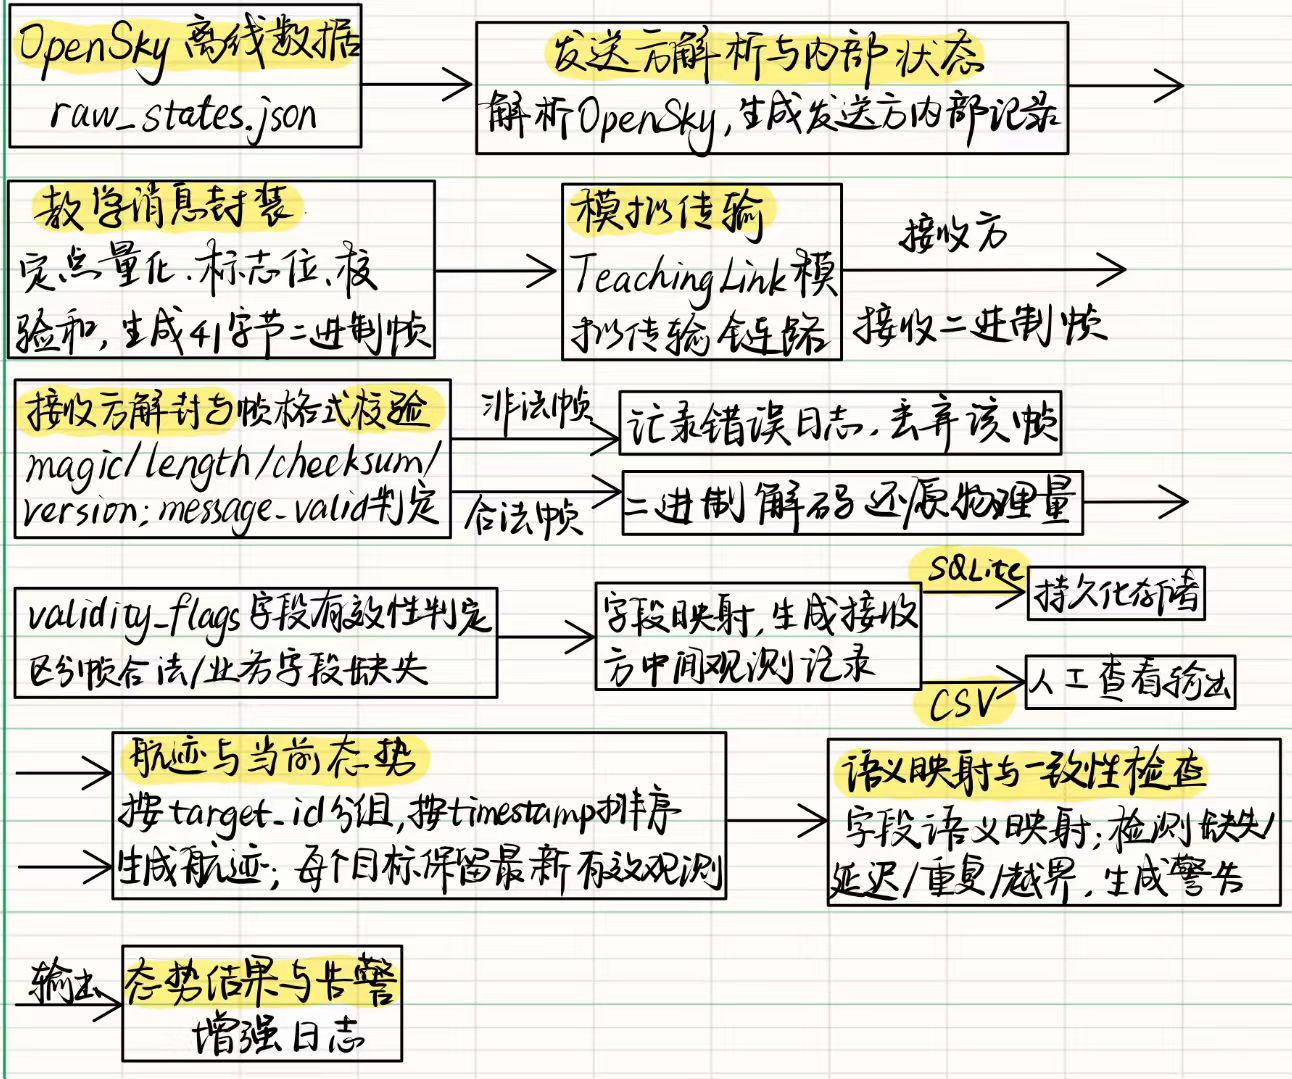 OpenSky 离线数据
raw_states.json
发送方解析与内部状态
解析OpenSky,生成发送方内部记录
教学消息封装
定点量化、标志位、校
验和,生成41字节二进制帧
模拟传输
TeachingLink模
拟传输链路
接收方
接收二进制帧
接收方解封与帧格式校验
magic/length/checksum/
version;message_valid判定
非法帧
记录错误日志,丢弃该帧
合法帧
二进制解码还原物理量
validity_flags字段有效性判定
区分帧合法/业务字段缺失
字段映射,生成接收
方中间观测记录
SQLite
持久化存储
CSV
人工查看输出
航迹与当前态势
按target_id分组,按timestamp排序
生成航迹;每个目标保留最新有效观测
语义映射与一致性检查
字段语义映射;检测缺失/
延迟/重复/越界,生成警告
输出
态势结果与告警
增强日志